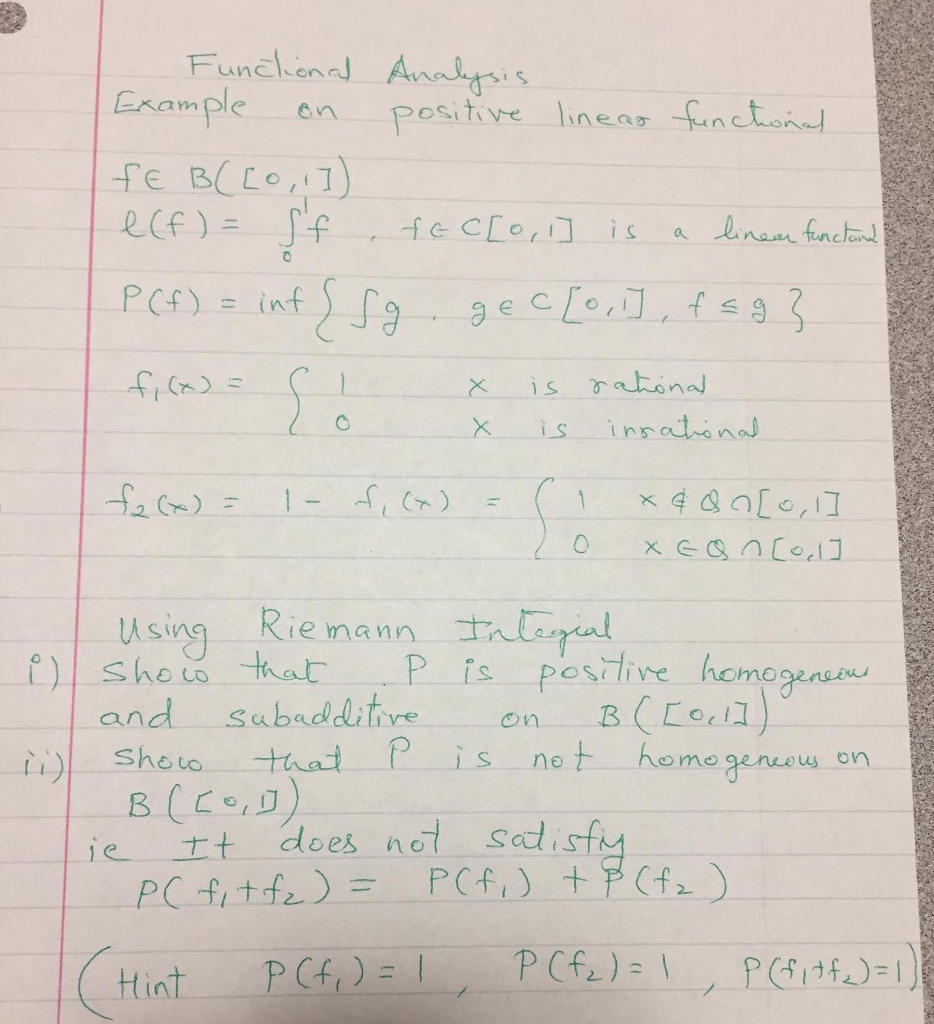 Functional Analysis
Example on positive linear functional
f ∈ B([0,1])
l(f) = ∫₀¹ f , f ∈ C[0,1] is a linear functional
P(f) = inf { ∫g . g ∈ C[0,1], f ≤ g }
f₁(x) = { 1 x is rational
0 x is irrational
f₂(x) = 1 - f₁(x) = { 1 x ∉ Q ∩ [0,1]
0 x ∈ Q ∩ [0,1]
Using Riemann Integral
i) Show that P is positive homogeneous
and subadditive on B([0,1])
ii) Show that P is not homogeneous on
B([0,1])
ie It does not satisfy
P(f₁+f₂) = P(f₁) + P(f₂)
(Hint P(f₁)=1, P(f₂)=1, P(f₁+f₂)=1)